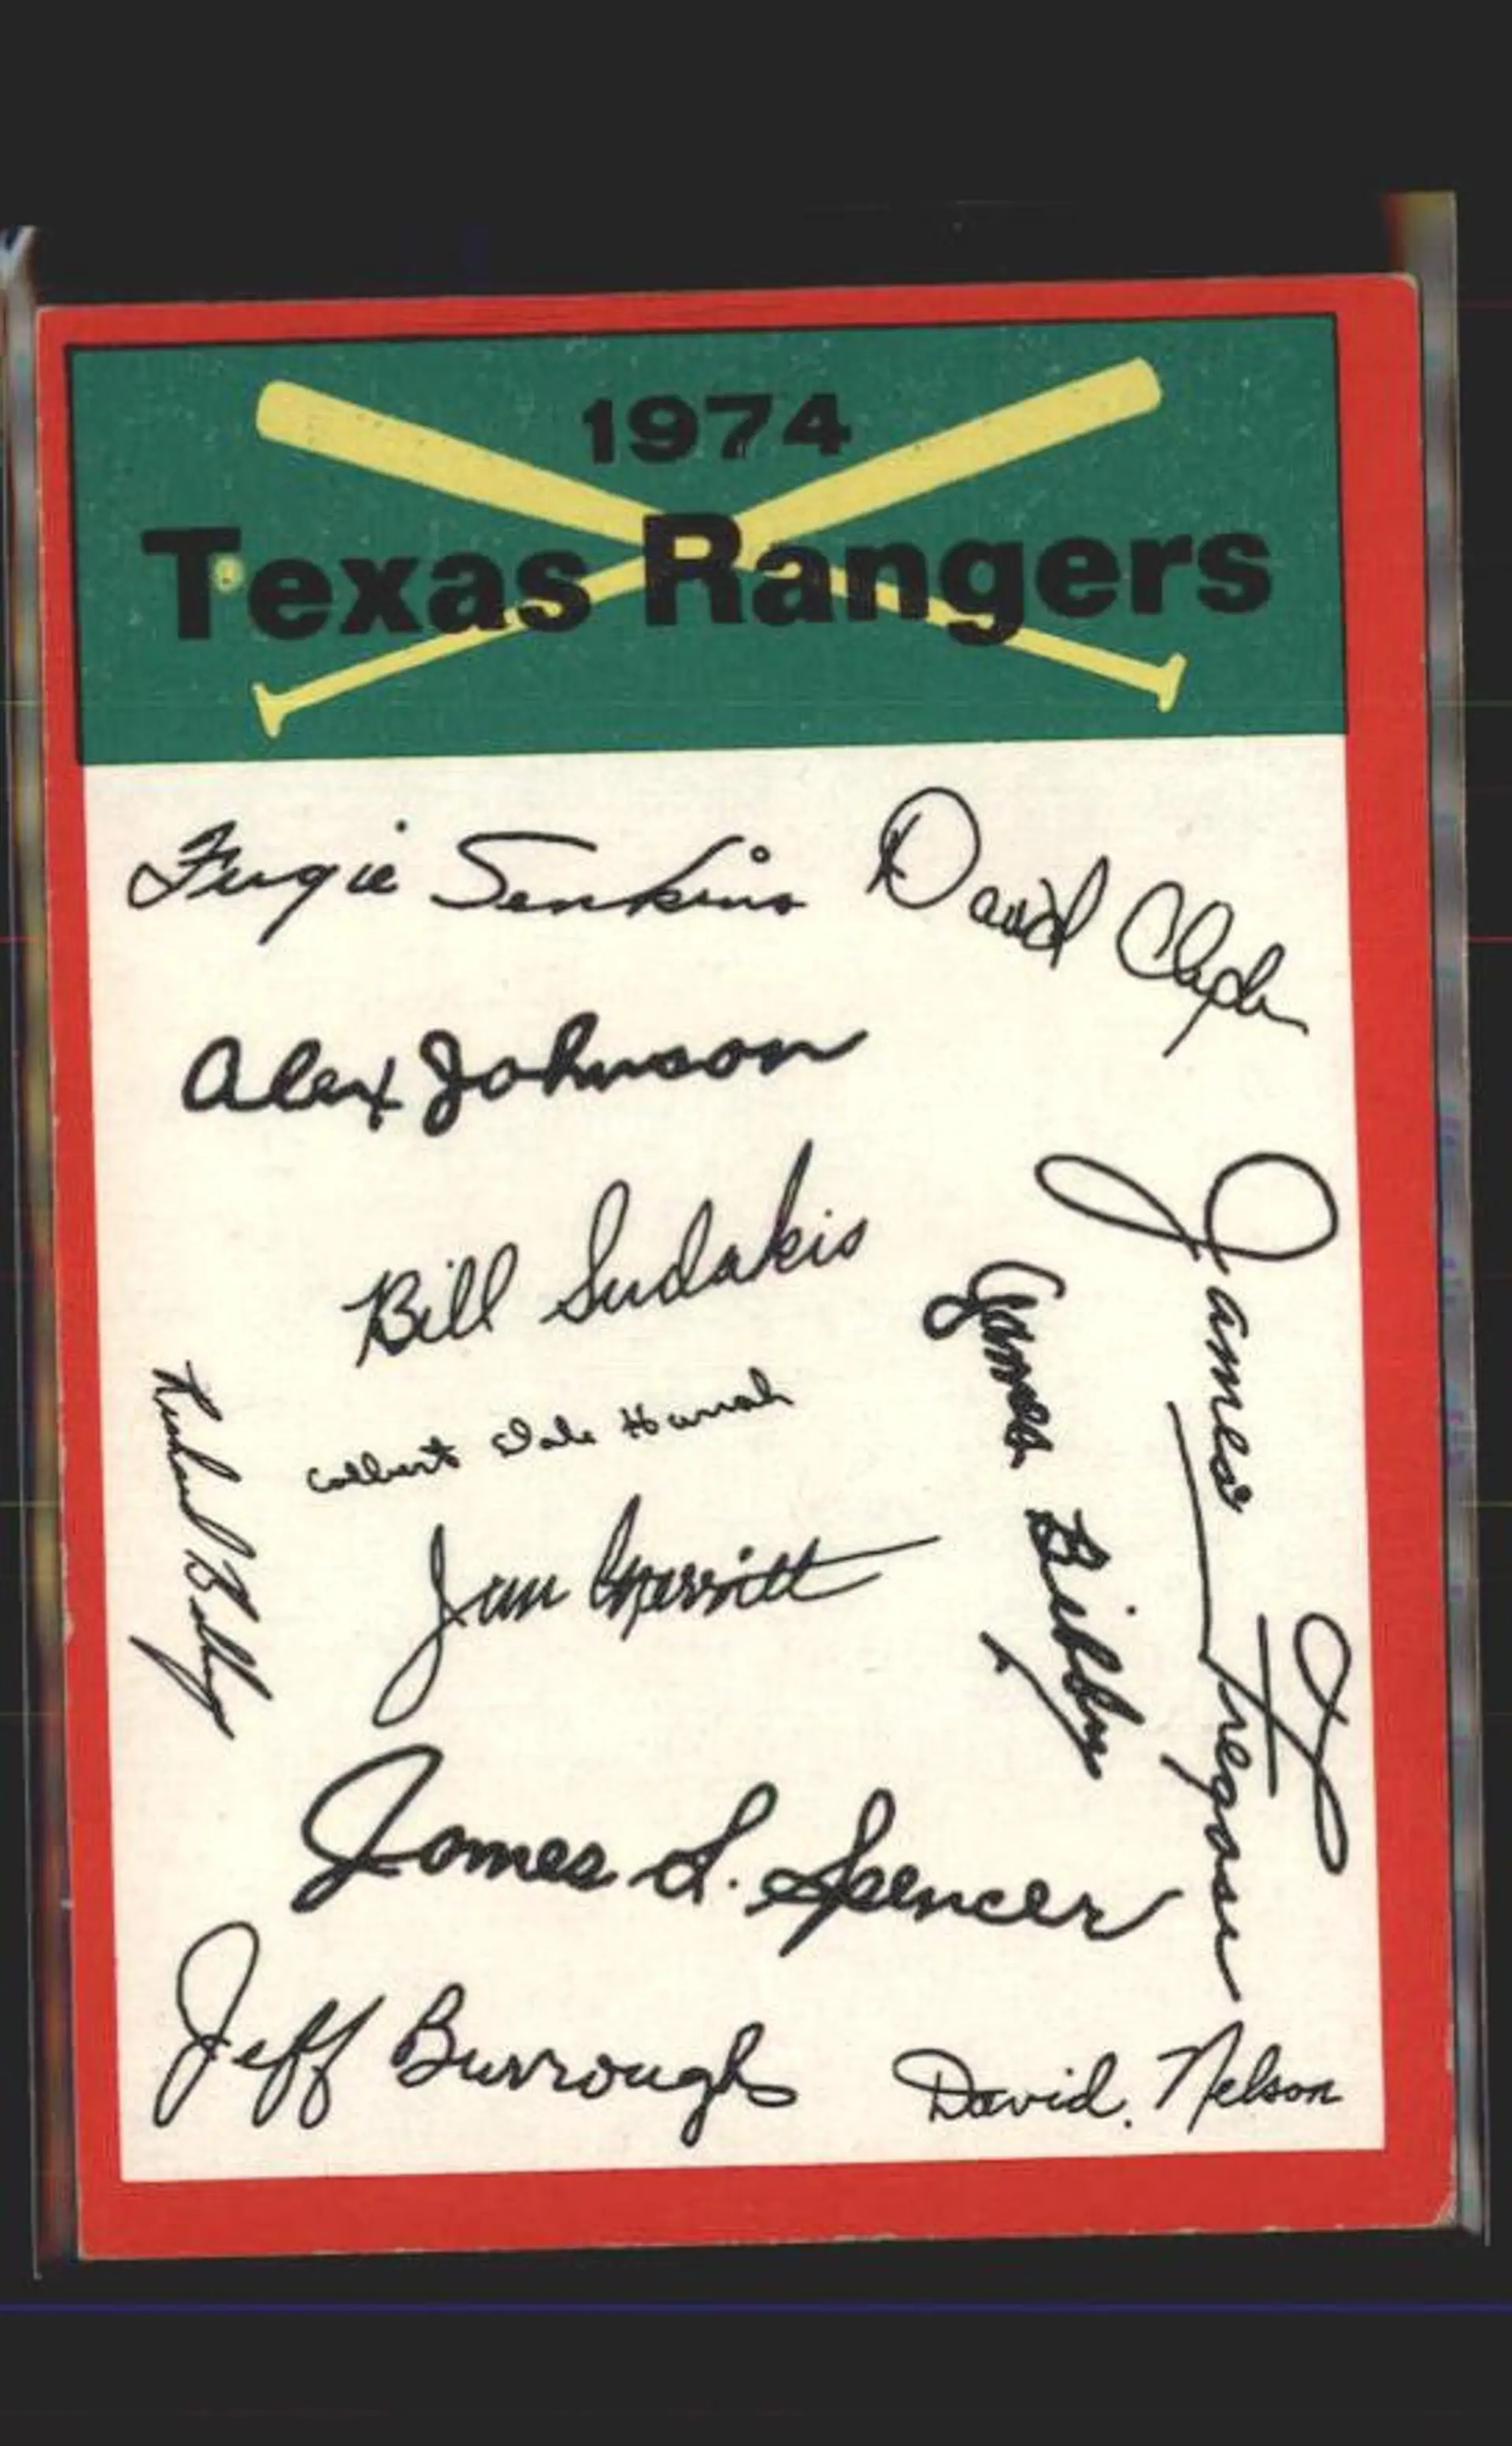 1974
Texas Rangers
Fergie Jenkins
David Clyde
Alex Johnson
Bill Sudakis
James Fregosi
James Bibby
Richard Billy
Colbert Dale Harrah
Jim Merritt
James L. Spencer
Jeff Burroughs
David. Nelson